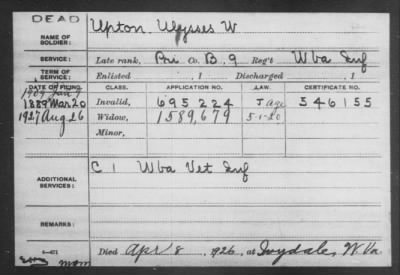 DEAD
NAME OF SOLDIER: Upton, Ulysses W
SERVICE: Late rank, Pri Co. B, 9 Reg't W Va Inf
TERM OF SERVICE: Enlisted , 1 Discharged , 1
DATE OF FILING. CLASS. APPLICATION NO. LAW. CERTIFICATE NO.
1889 Mar 20 Invalid, 695224 J Age 546155
1927 Aug 26 Widow, 1589,679 5-1-20
Minor,
ADDITIONAL SERVICES: C 1 W Va Vet Inf
REMARKS:
Died Apr 8, 1926, at Ivydale, W. Va.